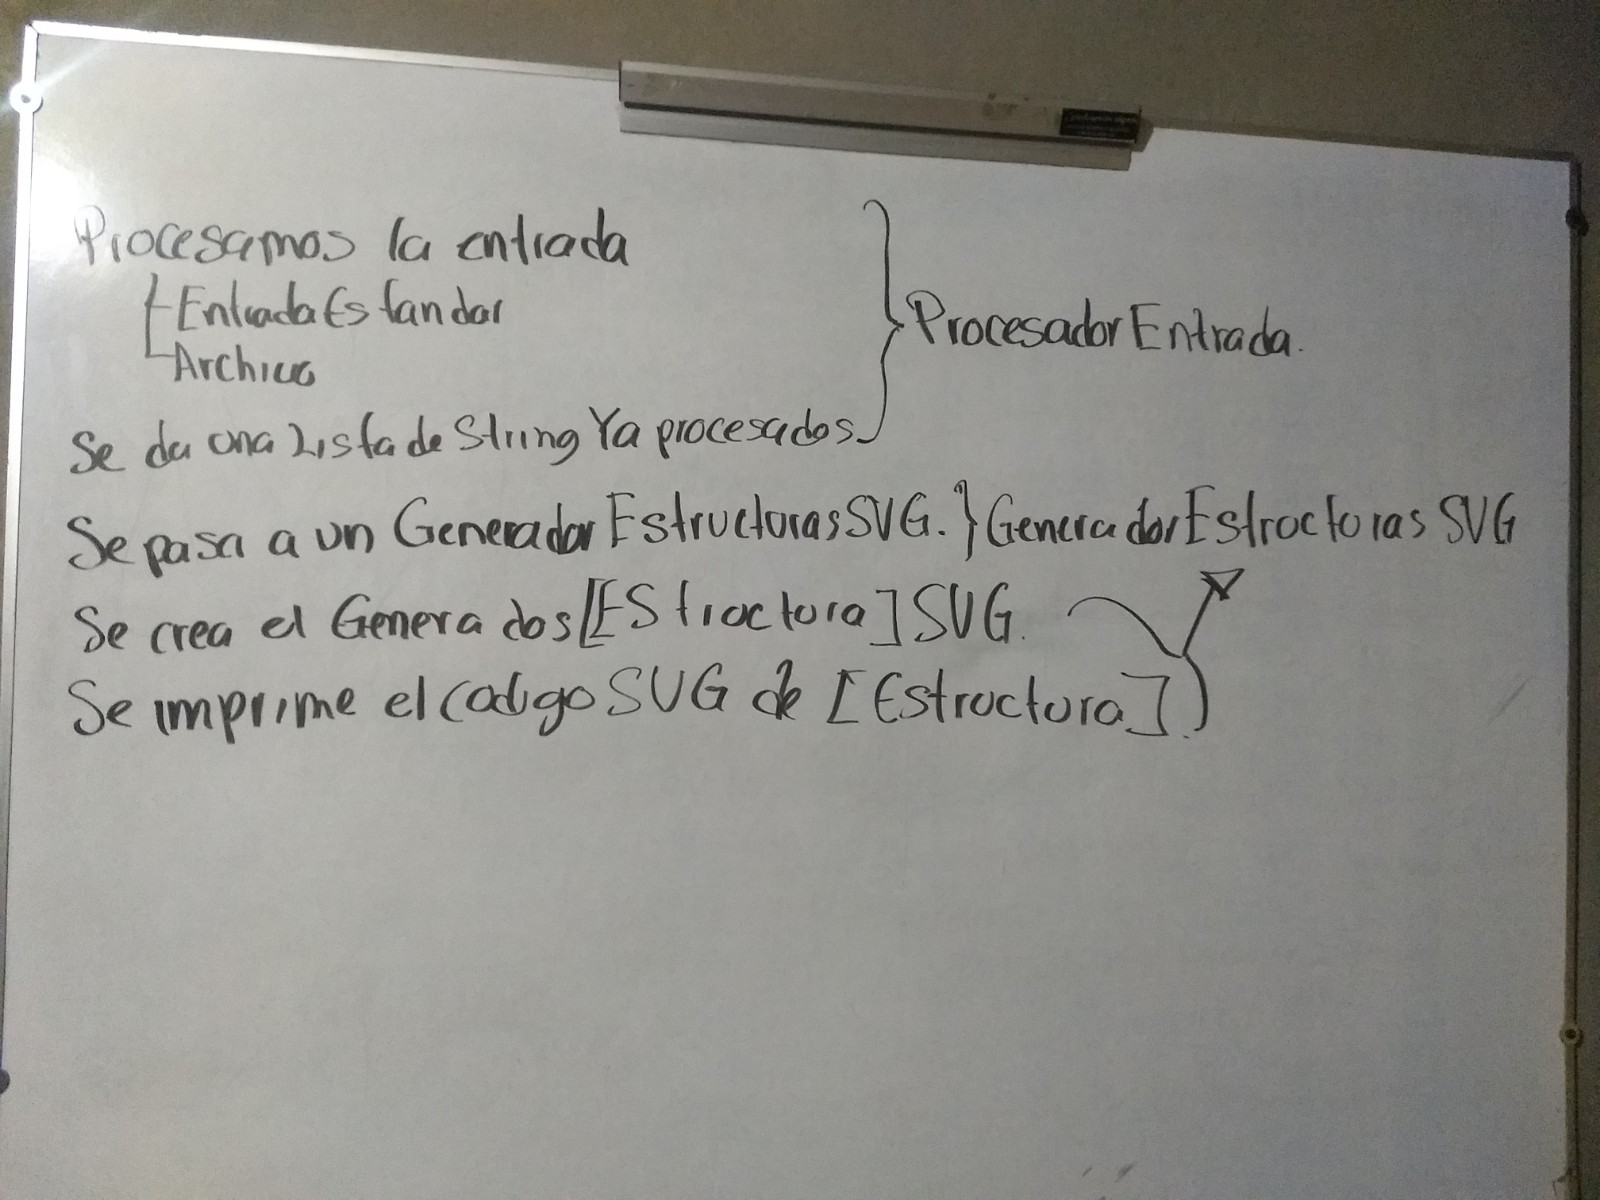 Procesamos la entrada
Entrada Estandar
Archivo
Se da una Lista de String Ya procesados
ProcesadorEntrada.
Se pasa a un GeneradorEstructurasSVG. } GeneradorEstructurasSVG
Se crea el Generados[Estructura]SVG.
Se imprime el codigo SVG de [Estructura].